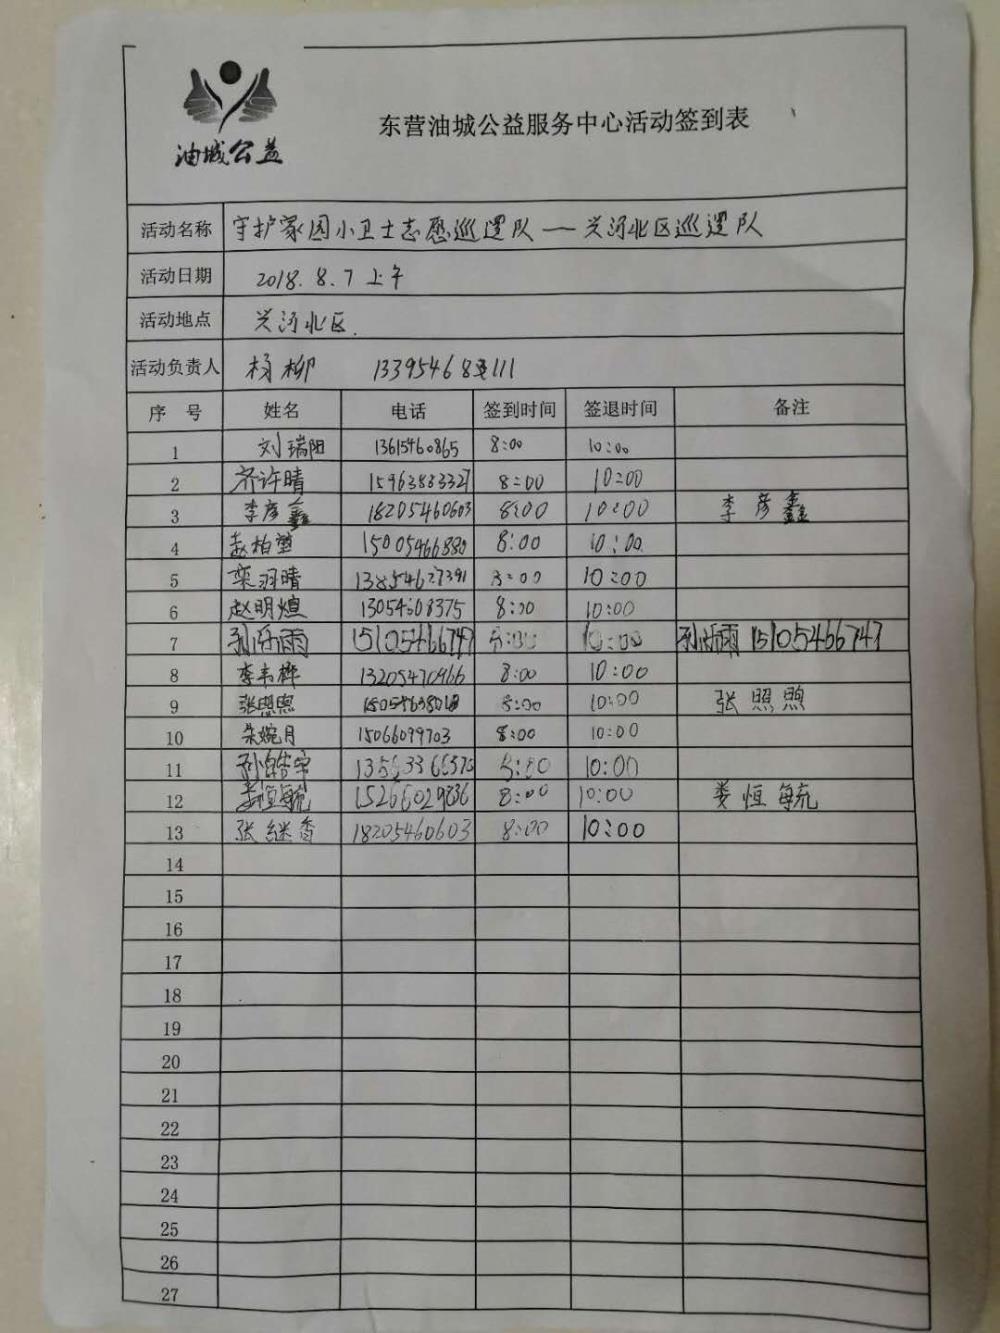 油城公益
东营油城公益服务中心活动签到表
活动名称 守护家园小卫士志愿巡逻队——兴河北区巡逻队
活动日期 2018.8.7上午
活动地点 兴河北区.
活动负责人 杨柳
序 号 姓名 电话 签到时间 签退时间 备注
1 刘瑞阳 13615460865 8:00 10:00
2 齐许晴 15963883327 8:00 10:00
3 李彦鑫 18205460603 8:00 10:00 李彦鑫
4 赵柏堃 15005466880 8:00 10:00
5 栾羽晴 13854627391 8:00 10:00
6 赵明煊 13054608375 8:00 10:00
7 15105466747 8:00 10:00 15105466747
8 李韦桦 13205470966 8:00 10:00
9 张照煦 8:00 10:00 张照煦
10 朱婉月 15066099703 8:00 10:00
11 孙皓宇 8:00 10:00
12 娄恒毓 15266029836 8:00 10:00 娄恒毓
13 张继香 18205460603 8:00 10:00
14
15
16
17
18
19
20
21
22
23
24
25
26
27